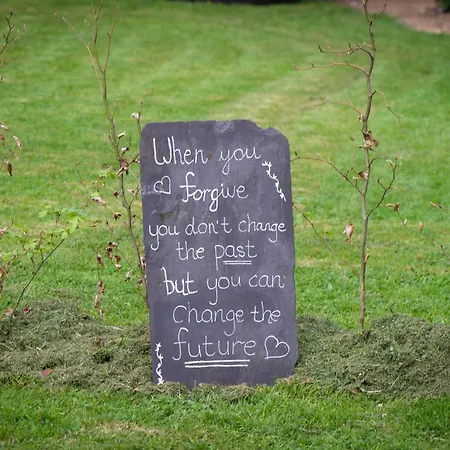 When you
forgive
you don't change
the past
but you can
Change the
future